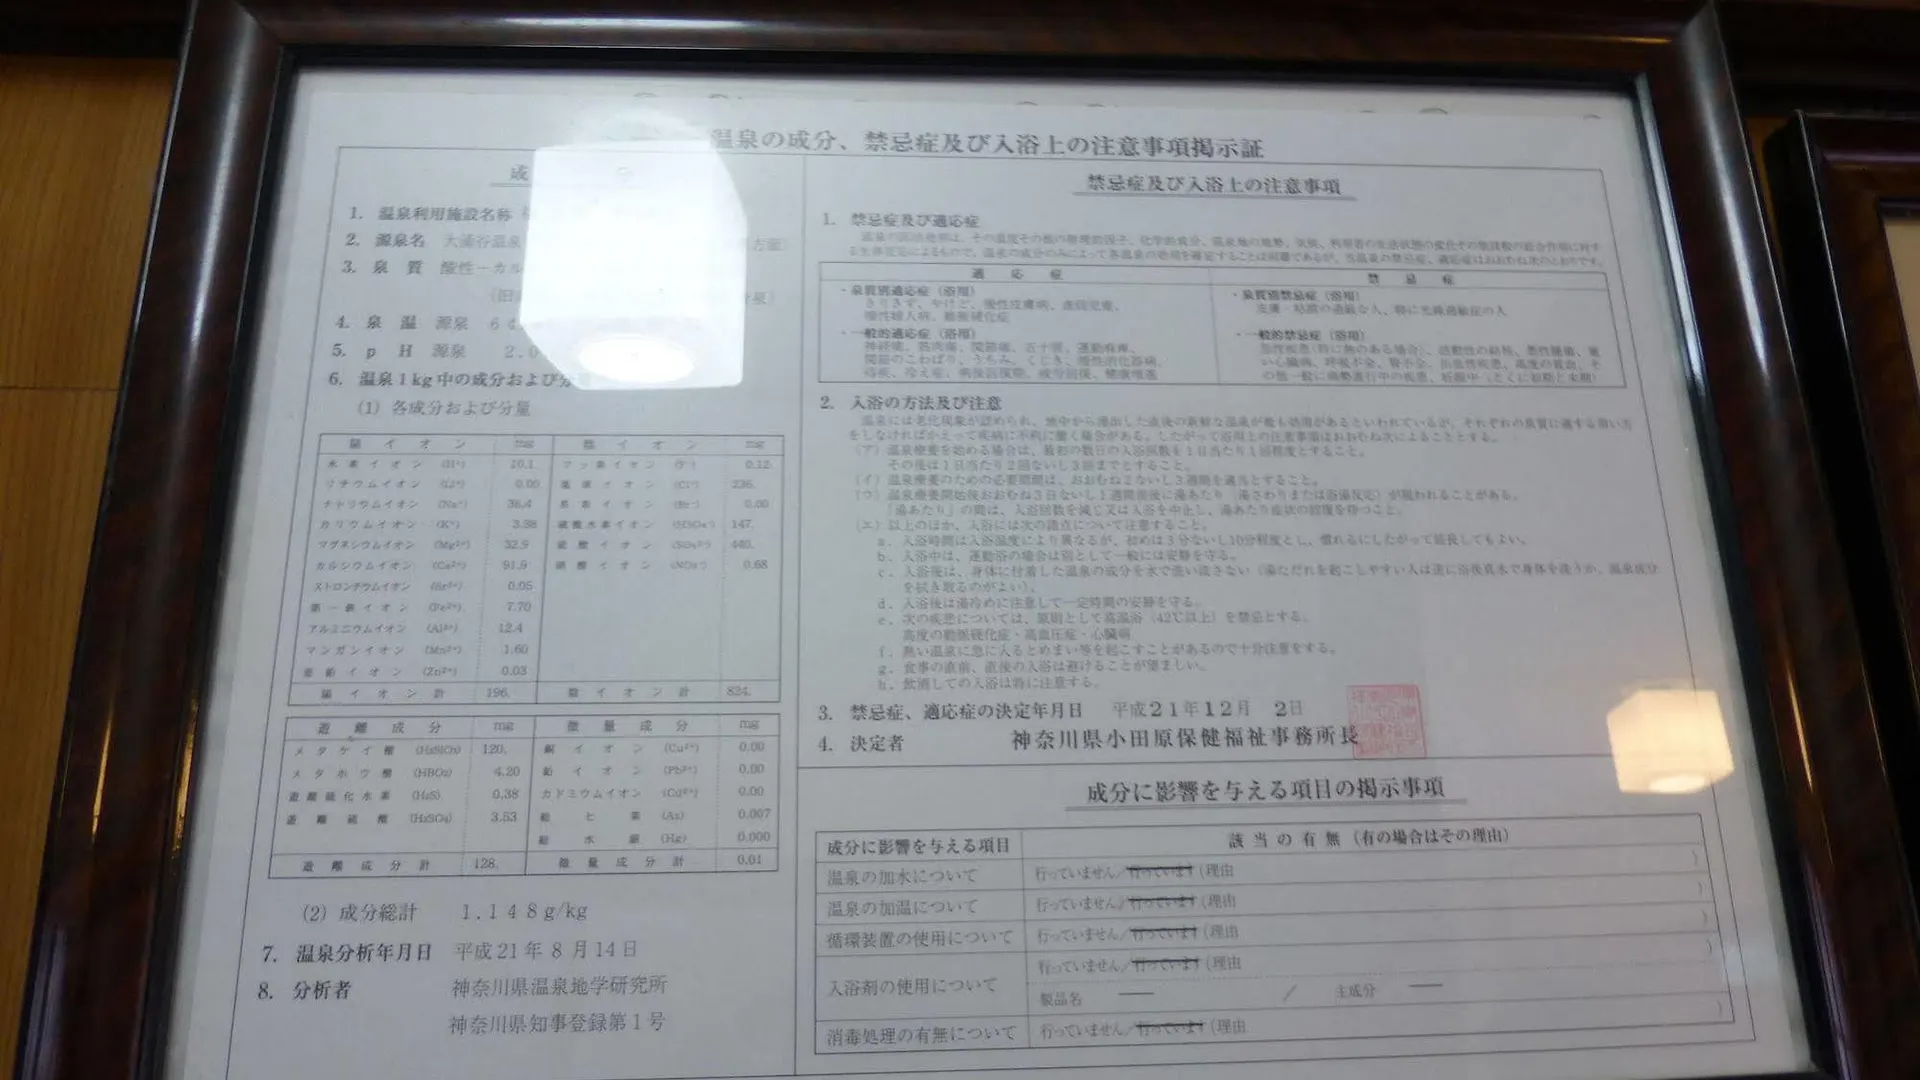 温泉の成分、禁忌症及び入浴上の注意事項掲示証
成
1. 温泉利用施設名称
2. 源泉名 大涌谷温泉
3. 泉質 酸性-カル
4. 泉温 源泉 64
5. pH 源泉 2.0
6. 温泉1kg中の成分および分
(1) 各成分および分量
陽イオン mg 陰イオン mg
水素イオン (H⁺) 10.1 フッ素イオン (F⁻) 0.12
リチウムイオン (Li⁺) 0.00 塩素イオン (Cl⁻) 236.
ナトリウムイオン (Na⁺) 36.4 臭素イオン (Br⁻) 0.00
カリウムイオン (K⁺) 3.38 硫酸水素イオン (HSO₄⁻) 147.
マグネシウムイオン (Mg²⁺) 32.9 硫酸イオン (SO₄²⁻) 440.
カルシウムイオン (Ca²⁺) 91.9 硝酸イオン (NO₃⁻) 0.68
ストロンチウムイオン (Sr²⁺) 0.05
第一鉄イオン (Fe²⁺) 7.70
アルミニウムイオン (Al³⁺) 12.4
マンガンイオン (Mn²⁺) 1.60
亜鉛イオン (Zn²⁺) 0.03
陽イオン計 196. 陰イオン計 824.
遊離成分 mg 微量成分 mg
メタケイ酸 (H₂SiO₃) 120. 銅イオン (Cu²⁺) 0.00
メタホウ酸 (HBO₂) 4.20 鉛イオン (Pb²⁺) 0.00
遊離硫化水素 (H₂S) 0.38 カドミウムイオン (Cd²⁺) 0.00
遊離硫酸 (H₂SO₄) 3.53 総ヒ素 (As) 0.007
総水銀 (Hg) 0.000
遊離成分計 128. 微量成分計 0.01
(2) 成分総計 1.148g/kg
7. 温泉分析年月日 平成21年8月14日
8. 分析者 神奈川県温泉地学研究所
神奈川県知事登録第1号
禁忌症及び入浴上の注意事項
1. 禁忌症及び適応症
適応症 禁忌症
・泉質別適応症(浴用)
きりきず、やけど、慢性皮膚病、虚弱児童、
慢性婦人病、動脈硬化症
・一般的適応症(浴用)
神経痛、筋肉痛、関節痛、五十肩、運動麻痺、
関節のこわばり、うちみ、くじき、慢性消化器病、
痔疾、冷え症、病後回復期、疲労回復、健康増進
・泉質別禁忌症(浴用)
皮膚・粘膜の過敏な人、特に光線過敏症の人
・一般的禁忌症(浴用)
急性疾患(特に熱のある場合)、活動性の結核、悪性腫瘍、重
い心臓病、呼吸不全、腎不全、出血性疾患、高度の貧血、そ
の他一般に病勢進行中の疾患、妊娠中(とくに初期と末期)
2. 入浴の方法及び注意
温泉には老化現象が認められ、地中から湧出した直後の新鮮な温泉が最も効用があるといわれているが、それぞれの泉質に適する用い方
をしなければかえって疾病に不利に働く場合がある。したがって浴用上の注意事項はおおむね次によることとする。
(ア) 温泉療養を始める場合は、最初の数日の入浴回数を1日当たり1回程度とすること。
その後は1日当たり2回ないし3回までとすること。
(イ) 温泉療養のための必要期間は、おおむね2ないし3週間を適当とすること。
(ウ) 温泉療養開始後おおむね3日ないし1週間前後に湯あたり(湯さわりまたは浴湯反応)が現われることがある。
「湯あたり」の間は、入浴回数を減じ又は入浴を中止し、湯あたり症状の回復を待つこと。
(エ) 以上のほか、入浴には次の諸点について注意すること。
a. 入浴時間は入浴温度により異なるが、初めは3分ないし10分程度とし、慣れるにしたがって延長してもよい。
b. 入浴中は、運動浴の場合は別として一般には安静を守る。
c. 入浴後は、身体に付着した温泉の成分を水で洗い流さない(湯ただれを起こしやすい人は逆に浴後真水で身体を洗うか、温泉成分
を拭き取るのがよい)。
d. 入浴後は湯冷めに注意して一定時間の安静を守る。
e. 次の疾患については、原則として高温浴(42℃以上)を禁忌とする。
高度の動脈硬化症・高血圧症・心臓病
f. 熱い温泉に急に入るとめまい等を起こすことがあるので十分注意をする。
g. 食事の直前、直後の入浴は避けることが望ましい。
h. 飲酒しての入浴は特に注意する。
3. 禁忌症、適応症の決定年月日 平成21年12月 2日
4. 決定者 神奈川県小田原保健福祉事務所長
成分に影響を与える項目の掲示事項
成分に影響を与える項目 該当の有無(有の場合はその理由)
温泉の加水について 行っていません/行っています(理由 )
温泉の加温について 行っていません/行っています(理由 )
循環装置の使用について 行っていません/行っています(理由 )
入浴剤の使用について 行っていません/行っています(理由 )
製品名 ― / 主成分 ―
消毒処理の有無について 行っていません/行っています(理由 )